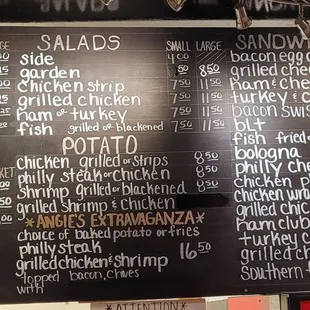 SALADS SMALL LARGE
side 4.00
garden 50 8.50
chicken strip 7.50 11.50
grilled chicken 7.50 11.50
ham or turkey 7.50 11.50
fish grilled or blackened 7.50 11.50
POTATO
chicken grilled or strips 8.50
philly steak or chicken 8.50
shrimp grilled or blackened 8.50
grilled shrimp & chicken 8.50
*ANGIE'S EXTRAVAGANZA*
choice of baked potato or fries
philly steak
grilled chicken & shrimp 16.50
topped bacon, chives
with
SANDW
bacon egg
grilled chee
ham & che
turkey & c
bacon swis
bLt
fish fried o
bologna
philly che
chicken p
chicken w
grilled chic
ham club
turkey c
grilled c
Southern f
ATTENTION